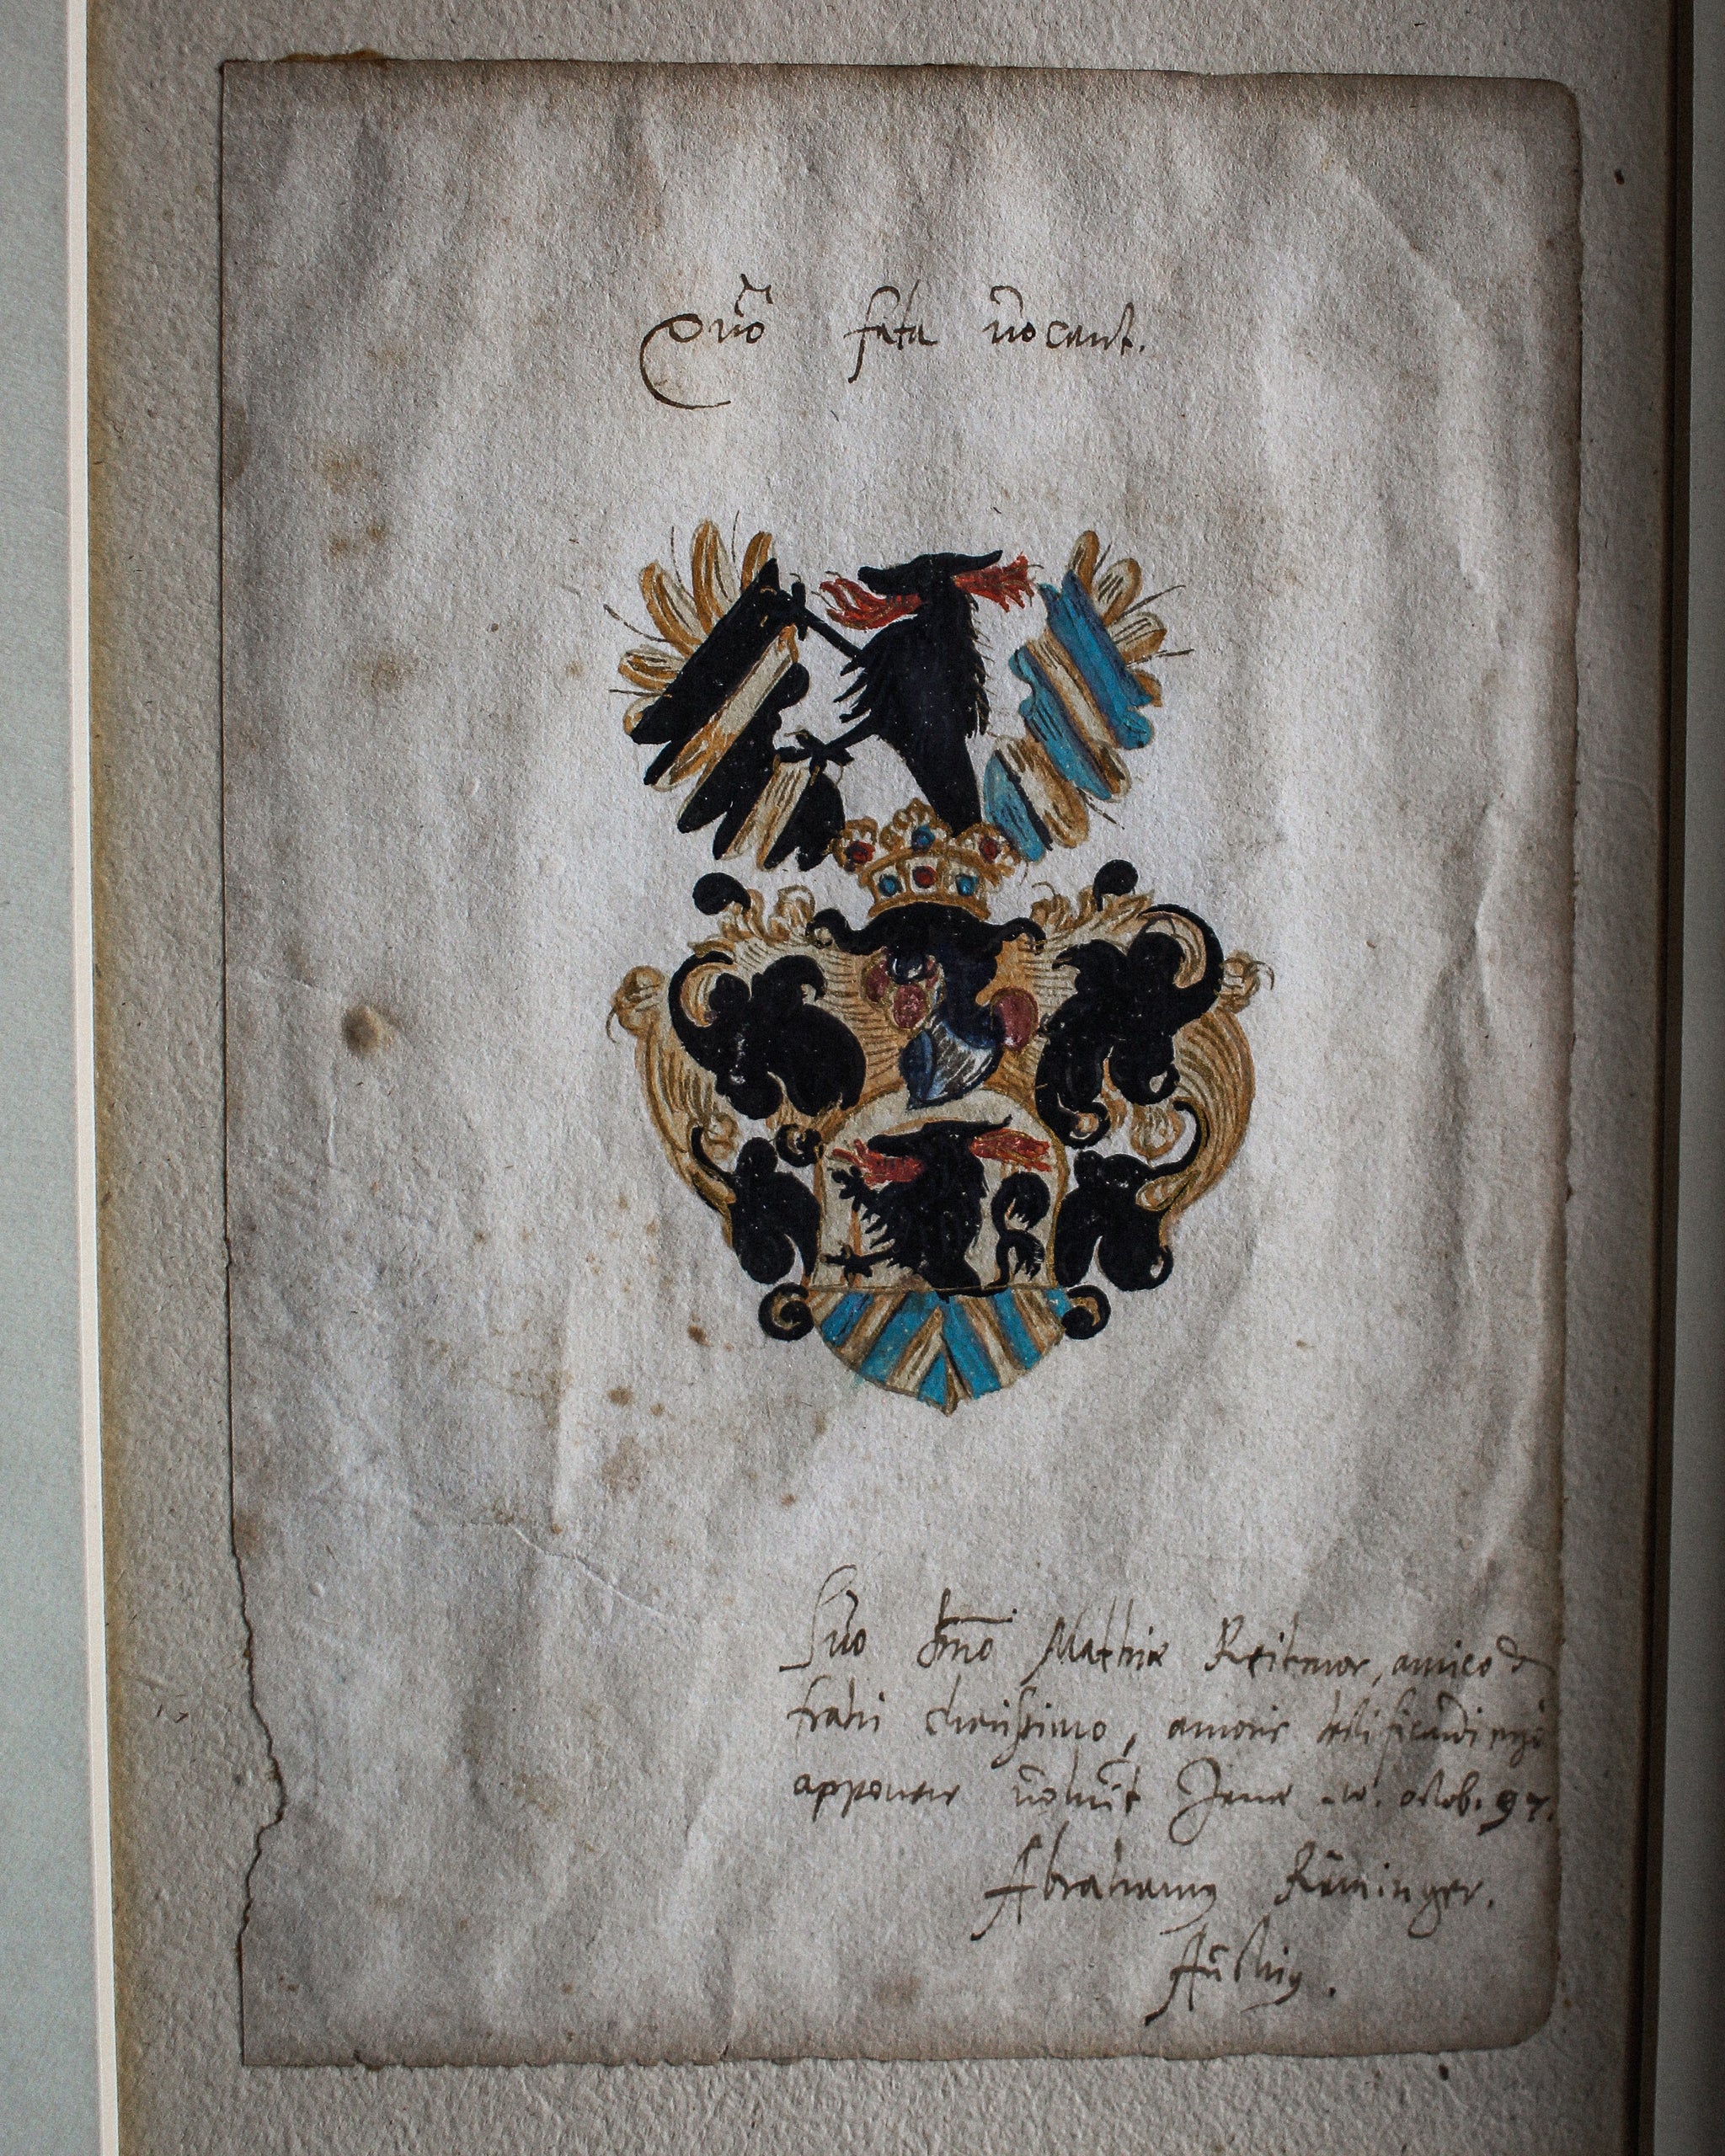 Quo fata vocant.
Suo dno Matthiæ Reitmor, amico &
fratri charissimo, amoris testificandi ergo
apponere voluit Jenæ octob. 97.
Abrahamus Röminger.
Austrius.